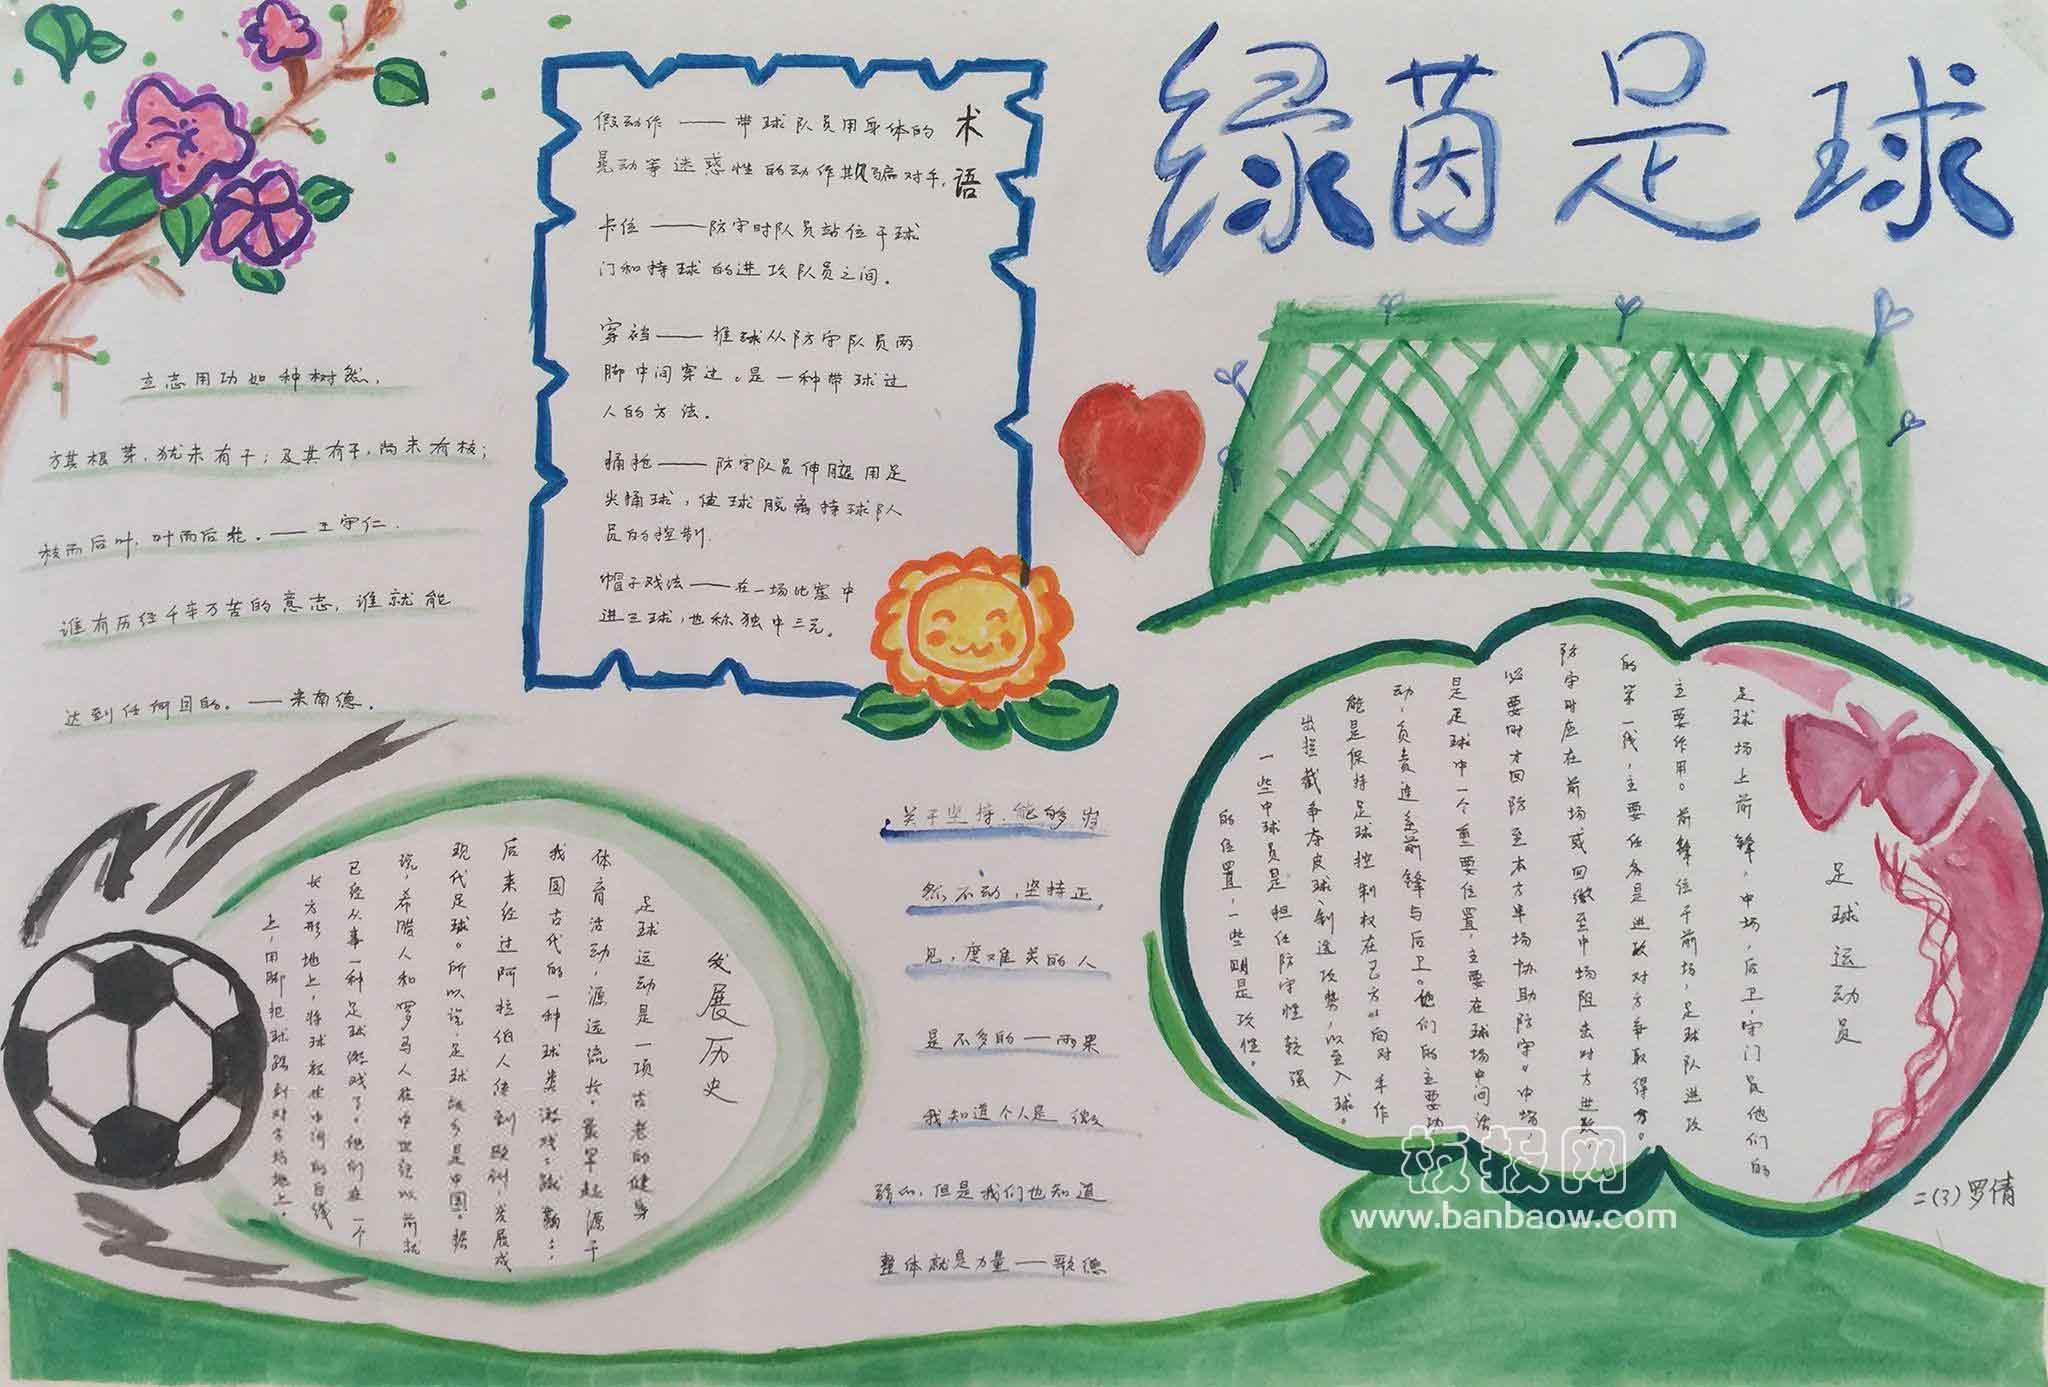 绿茵足球
术语
假动作——带球队员用身体的
晃动等迷惑性的动作欺骗对手。
卡位——防守时队员站位于球
门和持球的进攻队员之间。
穿裆——推球从防守队员两
脚中间穿过。是一种带球过
人的方法。
捅抢——防守队员伸腿用足
尖捅球，使球脱离持球队
员的控制.
帽子戏法——在一场比赛中
进三球，也称独中三元。
立志用功如种树然，
方其根芽，犹未有干；及其有干，尚未有枝；
枝而后叶，叶而后花。——王守仁.
谁有历经千辛万苦的意志，谁就能
达到任何目的。——米南德.
发展历史
足球运动是一项古老的健身
体育活动，源远流长。最早起源于
我国古代的一种球类游戏：蹴鞠；，
后来经过阿拉伯人传到欧洲，发展成
现代足球。所以说，足球故乡是中国。据
说，希腊人和罗马人在中世纪以前就
已经从事一种足球游戏了。他们在一个
长方形地上，将球放在中间的白线
上，用脚把球踢到对方场地上。
关于坚持，能够岿
然不动，坚持正
见，度难关的人
是不多的——雨果
我知道个人是微
弱的，但是我们也知道
整体就是力量——歌德
足球运动员
足球场上前锋，中场，后卫，守门员他们的
主要作用。前锋位于前场，足球队进攻
的第一线，主要任务是进攻对方争取得分。
防守时应在前场或回撤至中场阻击对方进攻，
必要时才回防至本方半场协助防守。中场，
是足球中一个重要位置，主要在球场中间活
动，负责连系前锋与后卫。他们的主要功
能是保持足球控制权在己方以向对手作
出拦截争夺皮球、制造攻势，以至入球。
一些中球员是担任防守性较强
的位置，一些则是攻性。
二(3)罗倩
板报网
www.banbaow.com